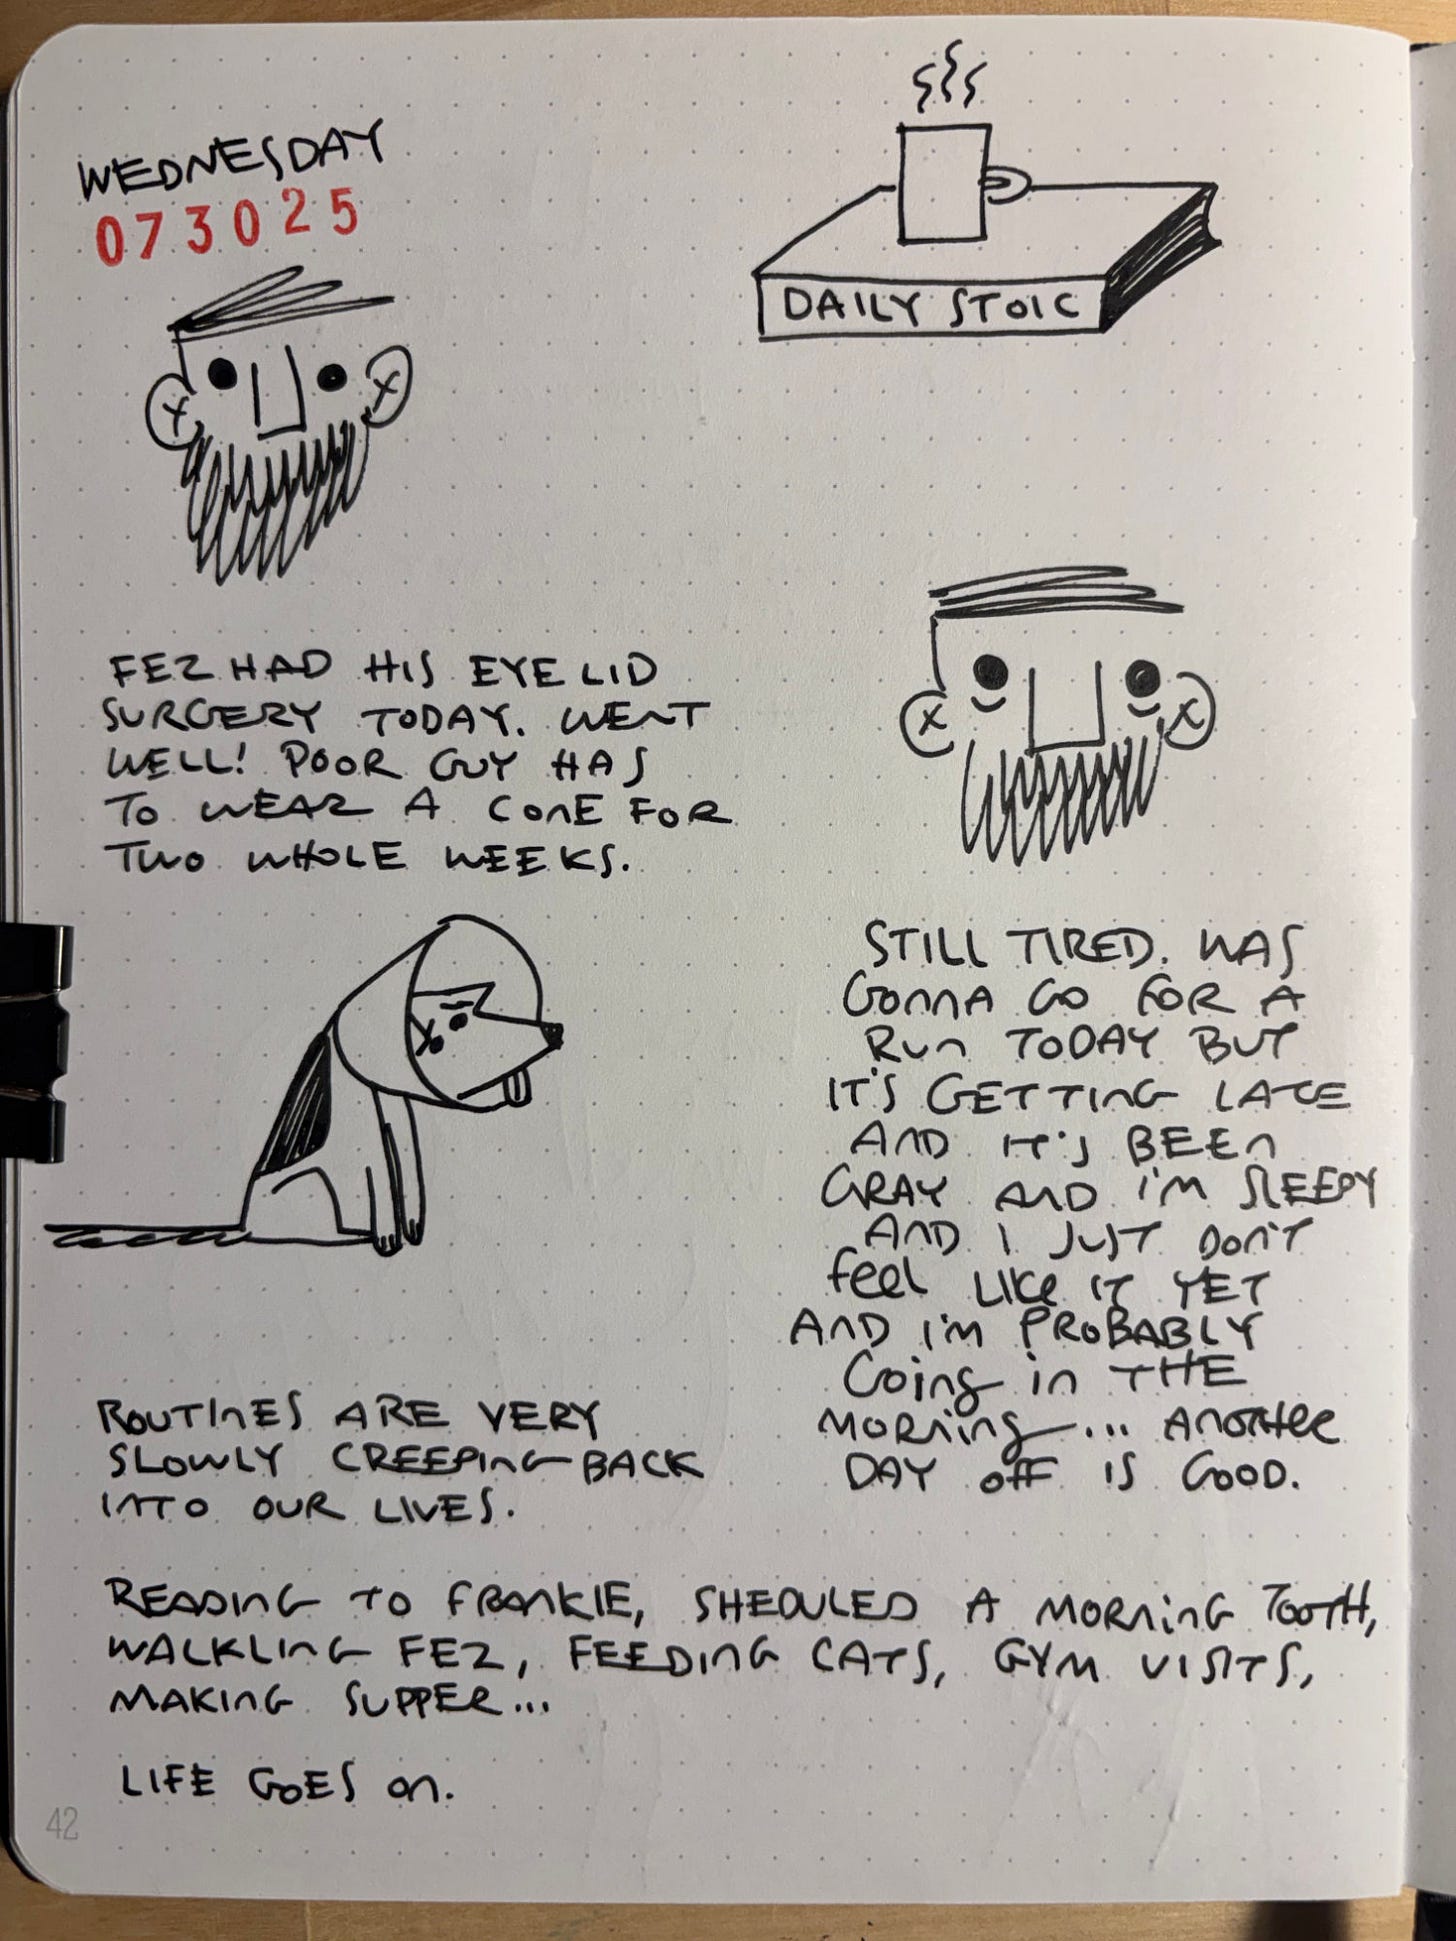 WEDNESDAY
073025
DAILY STOIC
FEZ HAD HIS EYELID
SURGERY TODAY. WENT
WELL! POOR GUY HAS
TO WEAR A CONE FOR
TWO WHOLE WEEKS.
STILL TIRED. WAS
GONNA GO FOR A
RUN TODAY BUT
IT'S GETTING LATE
AND IT'S BEEN
GRAY AND I'M SLEEPY
AND I JUST DON'T
FEEL LIKE IT YET
AND I'M PROBABLY
GOING IN THE
MORNING... ANOTHER
DAY OFF IS GOOD.
ROUTINES ARE VERY
SLOWLY CREEPING BACK
INTO OUR LIVES.
READING TO FRANKIE, SHEDULED A MORNING TOOTH,
WALKLING FEZ, FEEDING CATS, GYM VISITS,
MAKING SUPPER...
LIFE GOES ON.
42